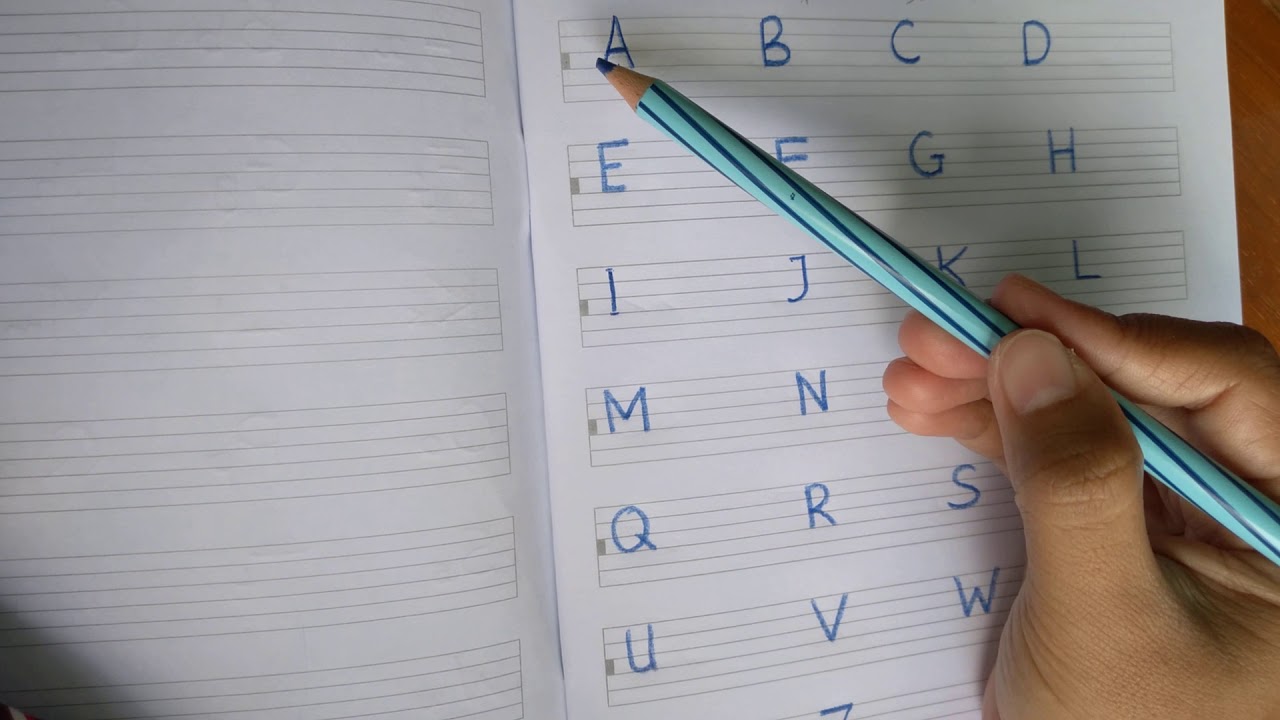 A B C D
E F G H
I J K L
M N
Q R S
U V W
Z